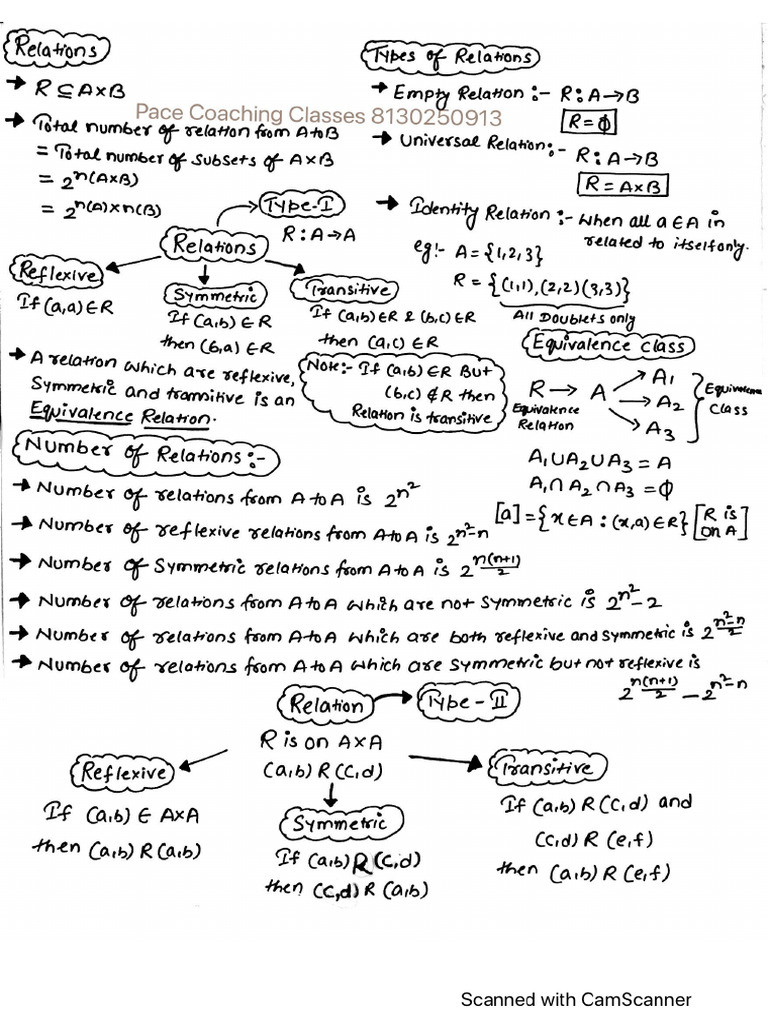 Relations
→ R ⊆ A×B
→ Total number of relation from A to B
= Total number of subsets of A×B
= 2^n(A×B)
= 2^n(A)×n(B)
Types of Relations
→ Empty Relation :- R: A→B
R = ϕ
→ Universal Relation:- R: A→B
R = A×B
→ Identity Relation :- When all a∈A in
related to itself only.
eg:- A = {1,2,3}
R = {(1,1),(2,2)(3,3)}
All Doublets only
Pace Coaching Classes 8130250913
Relations → Type-I
R: A→A
Reflexive
If (a,a)∈R
Symmetric
If (a,b) ∈ R
then (b,a) ∈ R
Transitive
If (a,b)∈R & (b,c)∈R
then (a,c) ∈ R
→ A relation which are reflexive,
Symmetric and transitive is an
Equivalence Relation.
Note:- If (a,b) ∈ R But
(b,c) ∉ R then
Relation is transitive
Equivalence class
R → A → A1
→ A2
→ A3
Equivalence
Relation
Equivalence
Class
A1∪A2∪A3 = A
A1∩A2∩A3 = ϕ
[a] = {x∈A : (x,a)∈R} [R is on A]
Number of Relations:-
→ Number of relations from A to A is 2^n^2
→ Number of reflexive relations from A to A is 2^n^2-n
→ Number of Symmetric relations from A to A is 2^n(n+1)/2
→ Number of relations from A to A which are not symmetric is 2^n^2 - 2
→ Number of relations from A to A which are both reflexive and symmetric is 2^(n^2-n)/2
→ Number of relations from A to A which are symmetric but not reflexive is
2^n(n+1)/2 - 2^n^2-n
Relation → Type-II
R is on A×A
(a,b) R (c,d)
Reflexive
If (a,b) ∈ A×A
then (a,b) R (a,b)
Symmetric
If (a,b) R (c,d)
then (c,d) R (a,b)
Transitive
If (a,b) R (c,d) and
(c,d) R (e,f)
then (a,b) R (e,f)
Scanned with CamScanner